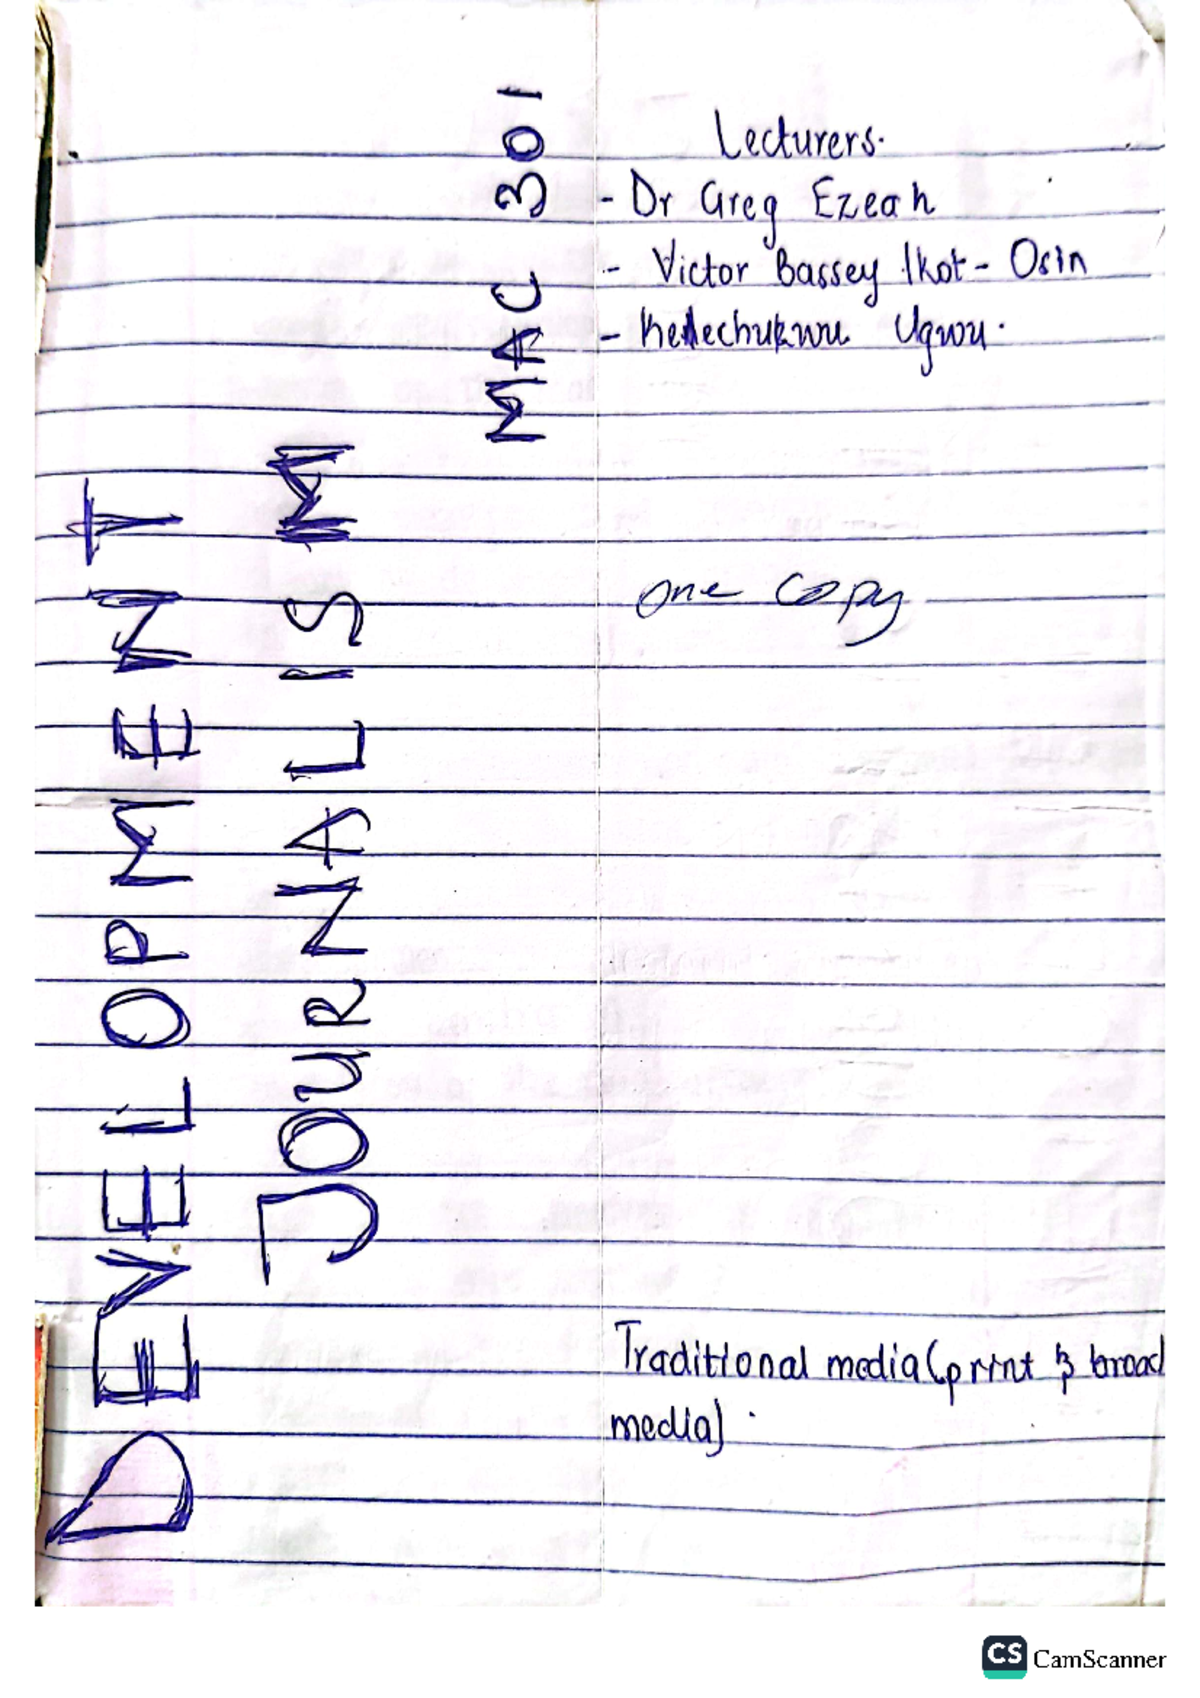 DEVELOPMENT
JOURNALISM
MAC 301
Lecturers.
- Dr Greg Ezeah
- Victor Bassey Ikot - Osin
- Kelechukwu Ugwu.
One Copy
Traditional media (print & broad
media).
CS CamScanner